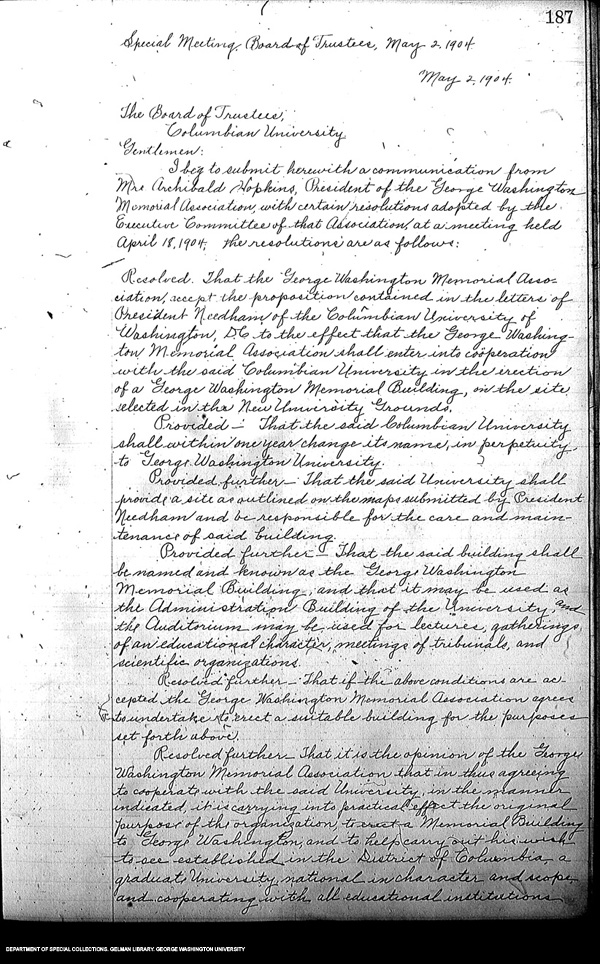 187
Special Meeting, Board of Trustees, May 2, 1904
May 2, 1904.
The Board of Trustees,
Columbian University
Gentlemen:
I beg to submit herewith a communication from
Mrs Archibald Hopkins, President of the George Washington
Memorial Association, with certain resolutions adopted by the
Executive Committee of that Association, at a meeting held
April 18, 1904, the resolutions are as follows:
Resolved. That the George Washington Memorial Asso-
ciation, accept the proposition contained in the letters of
President Needham of the Columbian University of
Washington, D.C. to the effect that the George Washing-
ton Memorial Association shall enter into coöperation
with the said Columbian University in the erection
of a George Washington Memorial Building, on the site
selected in the New University Grounds.
Provided — That the said Columbian University
shall within one year change its name, in perpetuity,
to George Washington University.
Provided further — That the said University shall
provide a site as outlined on the maps submitted by President
Needham and be responsible for the care and main-
tenance of said building.
Provided further — That the said building shall
be named and known as the George Washington
Memorial Building, and that it may be used as
the Administration Building of the University, and
the Auditorium may be used for lectures, gatherings
of an educational character, meetings of tribunals, and
scientific organizations.
Resolved further — That if the above conditions are ac-
cepted the George Washington Memorial Association agrees
to undertake to erect a suitable building for the purposes
set forth above.
Resolved further — That it is the opinion of the George
Washington Memorial Association that in thus agreeing
to cooperate with the said University, in the manner
indicated, it is carrying into practical effect the original
purpose of the organization, to erect a Memorial Building
to George Washington, and to help carry out his wish
to see established in the District of Columbia a
graduate University, national in character and scope,
and cooperating with all educational institutions
DEPARTMENT OF SPECIAL COLLECTIONS. GELMAN LIBRARY. GEORGE WASHINGTON UNIVERSITY